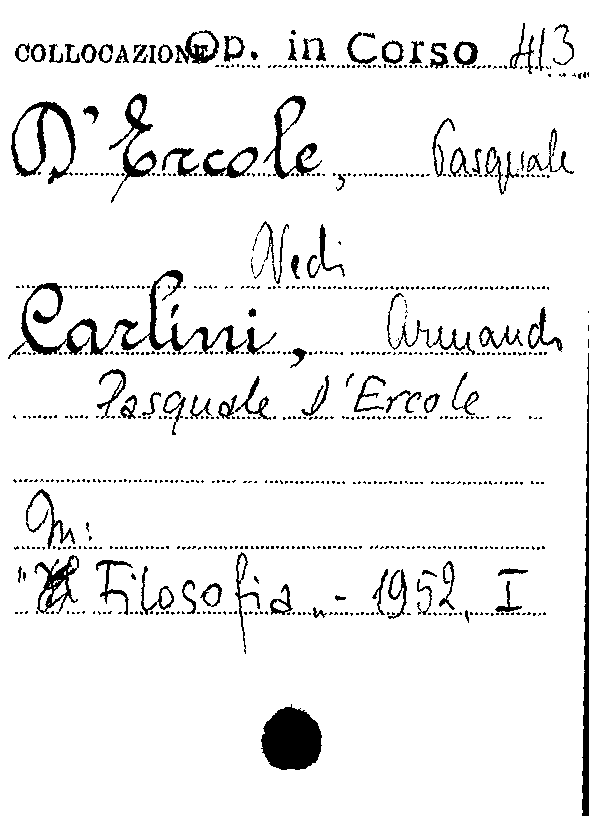 COLLOCAZIONE Op. in Corso 413
D'Ercole, Pasquale
Vedi
Carlini, Armando
Pasquale D'Ercole
In:
" Filosofia „ - 1952, I